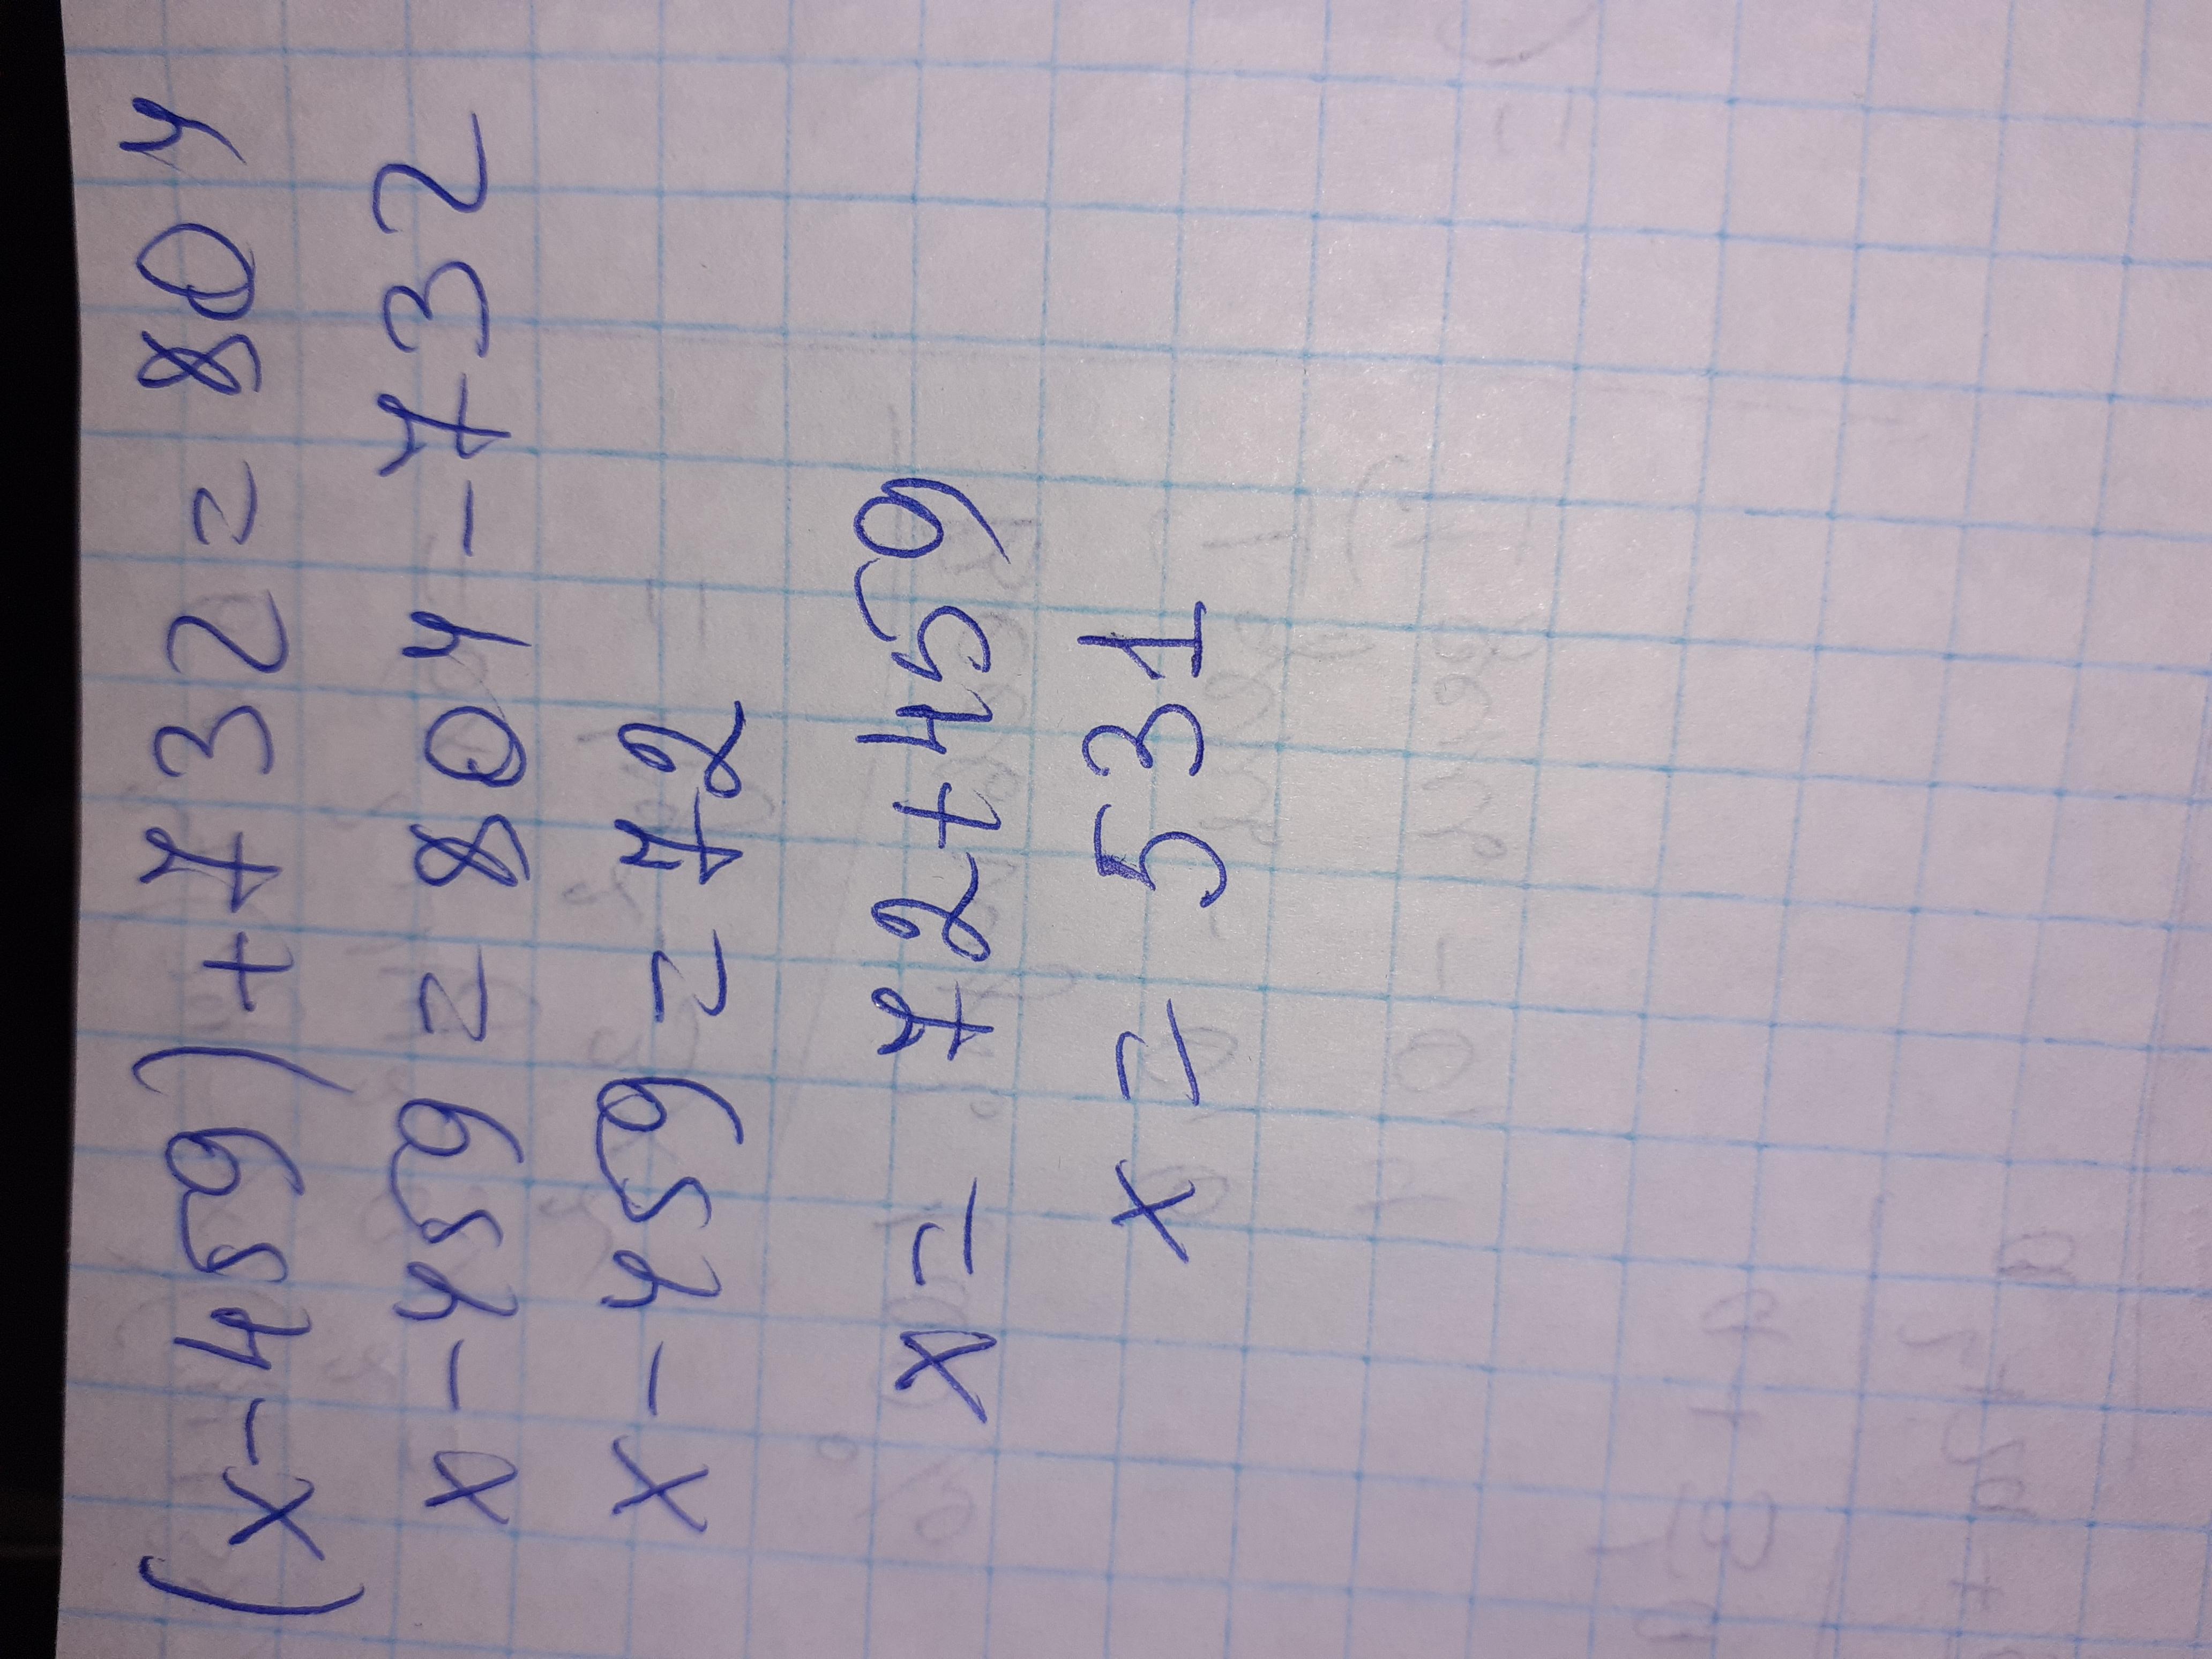 (x-459)+732=804
x-459=804-732
x-459=72
x=72+459
x=531